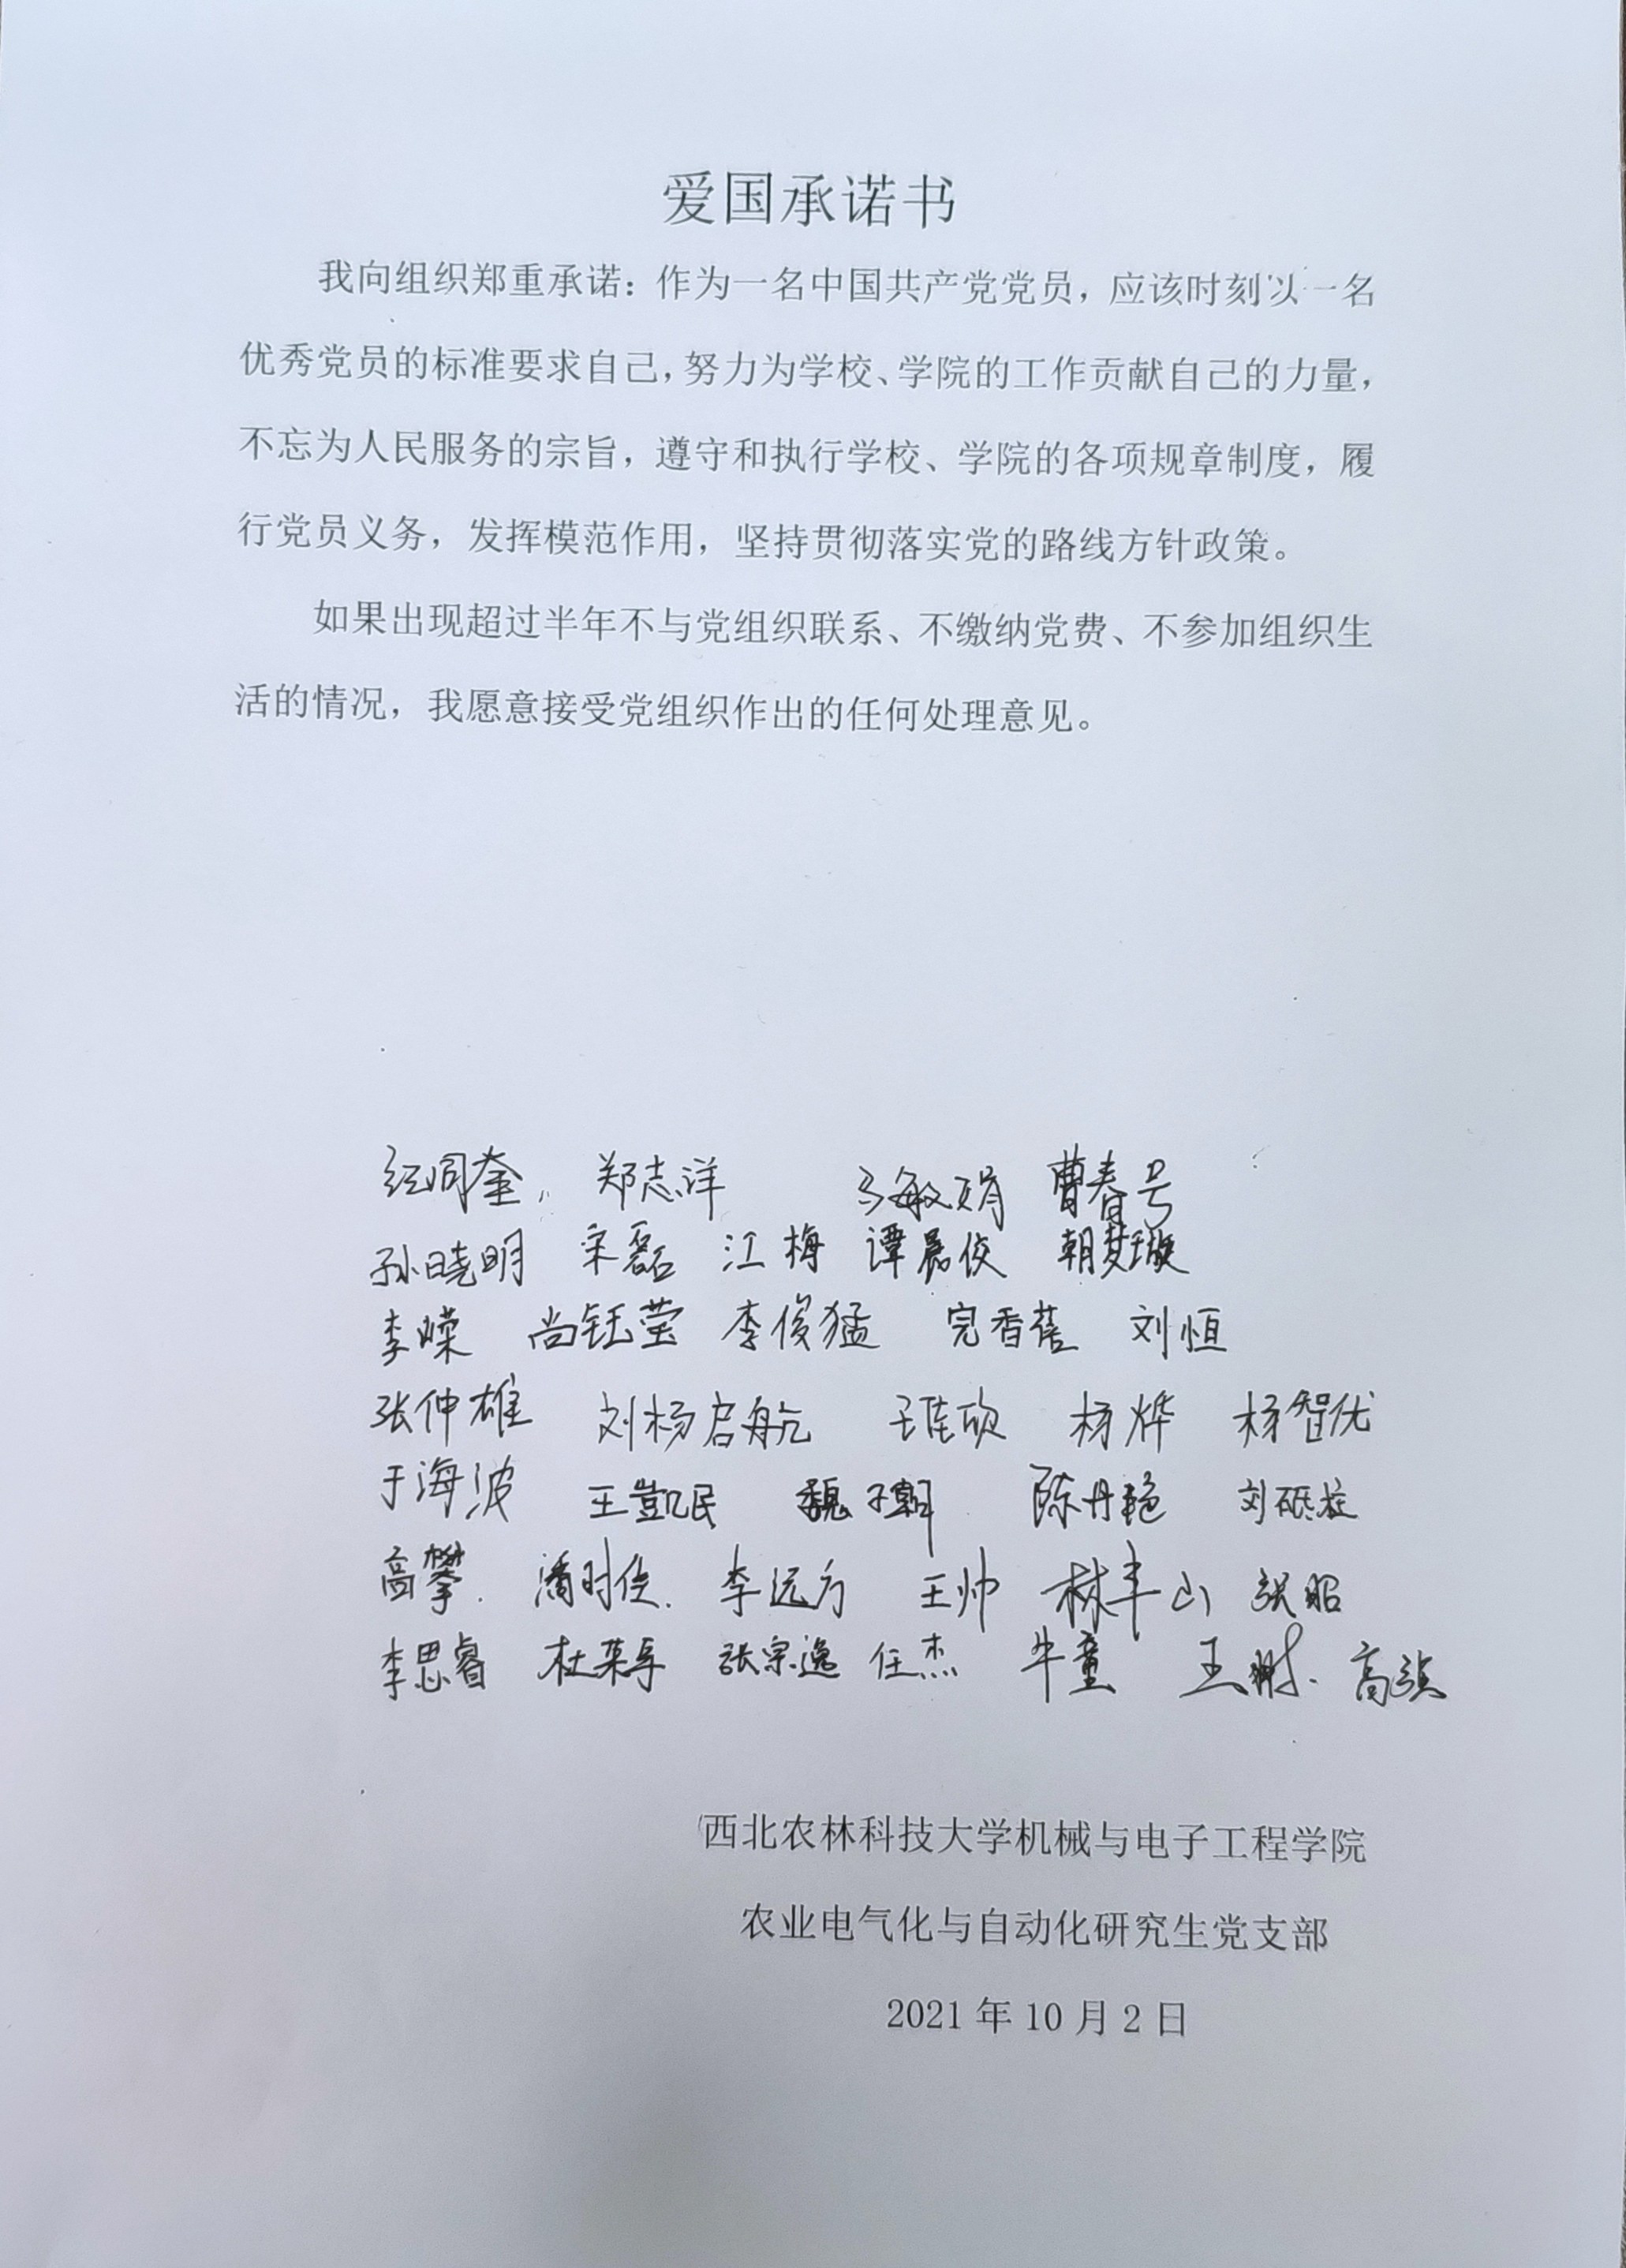 爱国承诺书
我向组织郑重承诺：作为一名中国共产党党员，应该时刻以一名
优秀党员的标准要求自己，努力为学校、学院的工作贡献自己的力量，
不忘为人民服务的宗旨，遵守和执行学校、学院的各项规章制度，履
行党员义务，发挥模范作用，坚持贯彻落实党的路线方针政策。
如果出现超过半年不与党组织联系、不缴纳党费、不参加组织生
活的情况，我愿意接受党组织作出的任何处理意见。
郑志洋 马敏娟 曹春号
孙晓明 宋磊 江梅 谭晨佼
李嵘 尚钰莹 李俊猛 完香蓓 刘恒
张仲雄 刘杨启航 王佳欣 杨烨 杨智优
于海波 王凯民 魏子朝 陈丹艳
高攀 潘时佳 李远方 王帅 林丰山 张昭
李思睿 张宗逸 任杰 牛童
西北农林科技大学机械与电子工程学院
农业电气化与自动化研究生党支部
2021 年 10 月 2 日